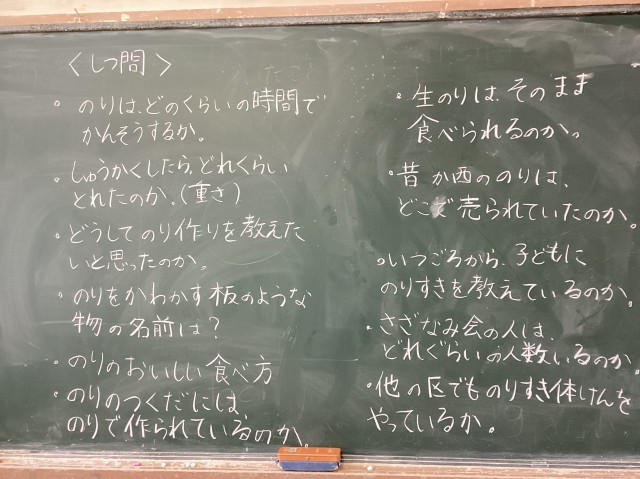 〈しつ問〉
・のりは、どのくらいの時間で
かんそうするか。
・しゅうかくしたら、どれくらい
とれたのか。(重さ)
・どうしてのり作りを教えた
いと思ったのか。
・のりをかわかす板のような
物の名前は？
・のりのおいしい食べ方
・のりのつくだには、
のりで作られているのか。
・生のりは、そのまま
食べられるのか。
・昔か西ののりは、
どこで売られていたのか。
・いつごろから、子どもに
のりすきを教えているのか。
・さざなみ会の人は、
どれぐらいの人数いるのか。
・他の区でものりすき体けんを
やっているか。